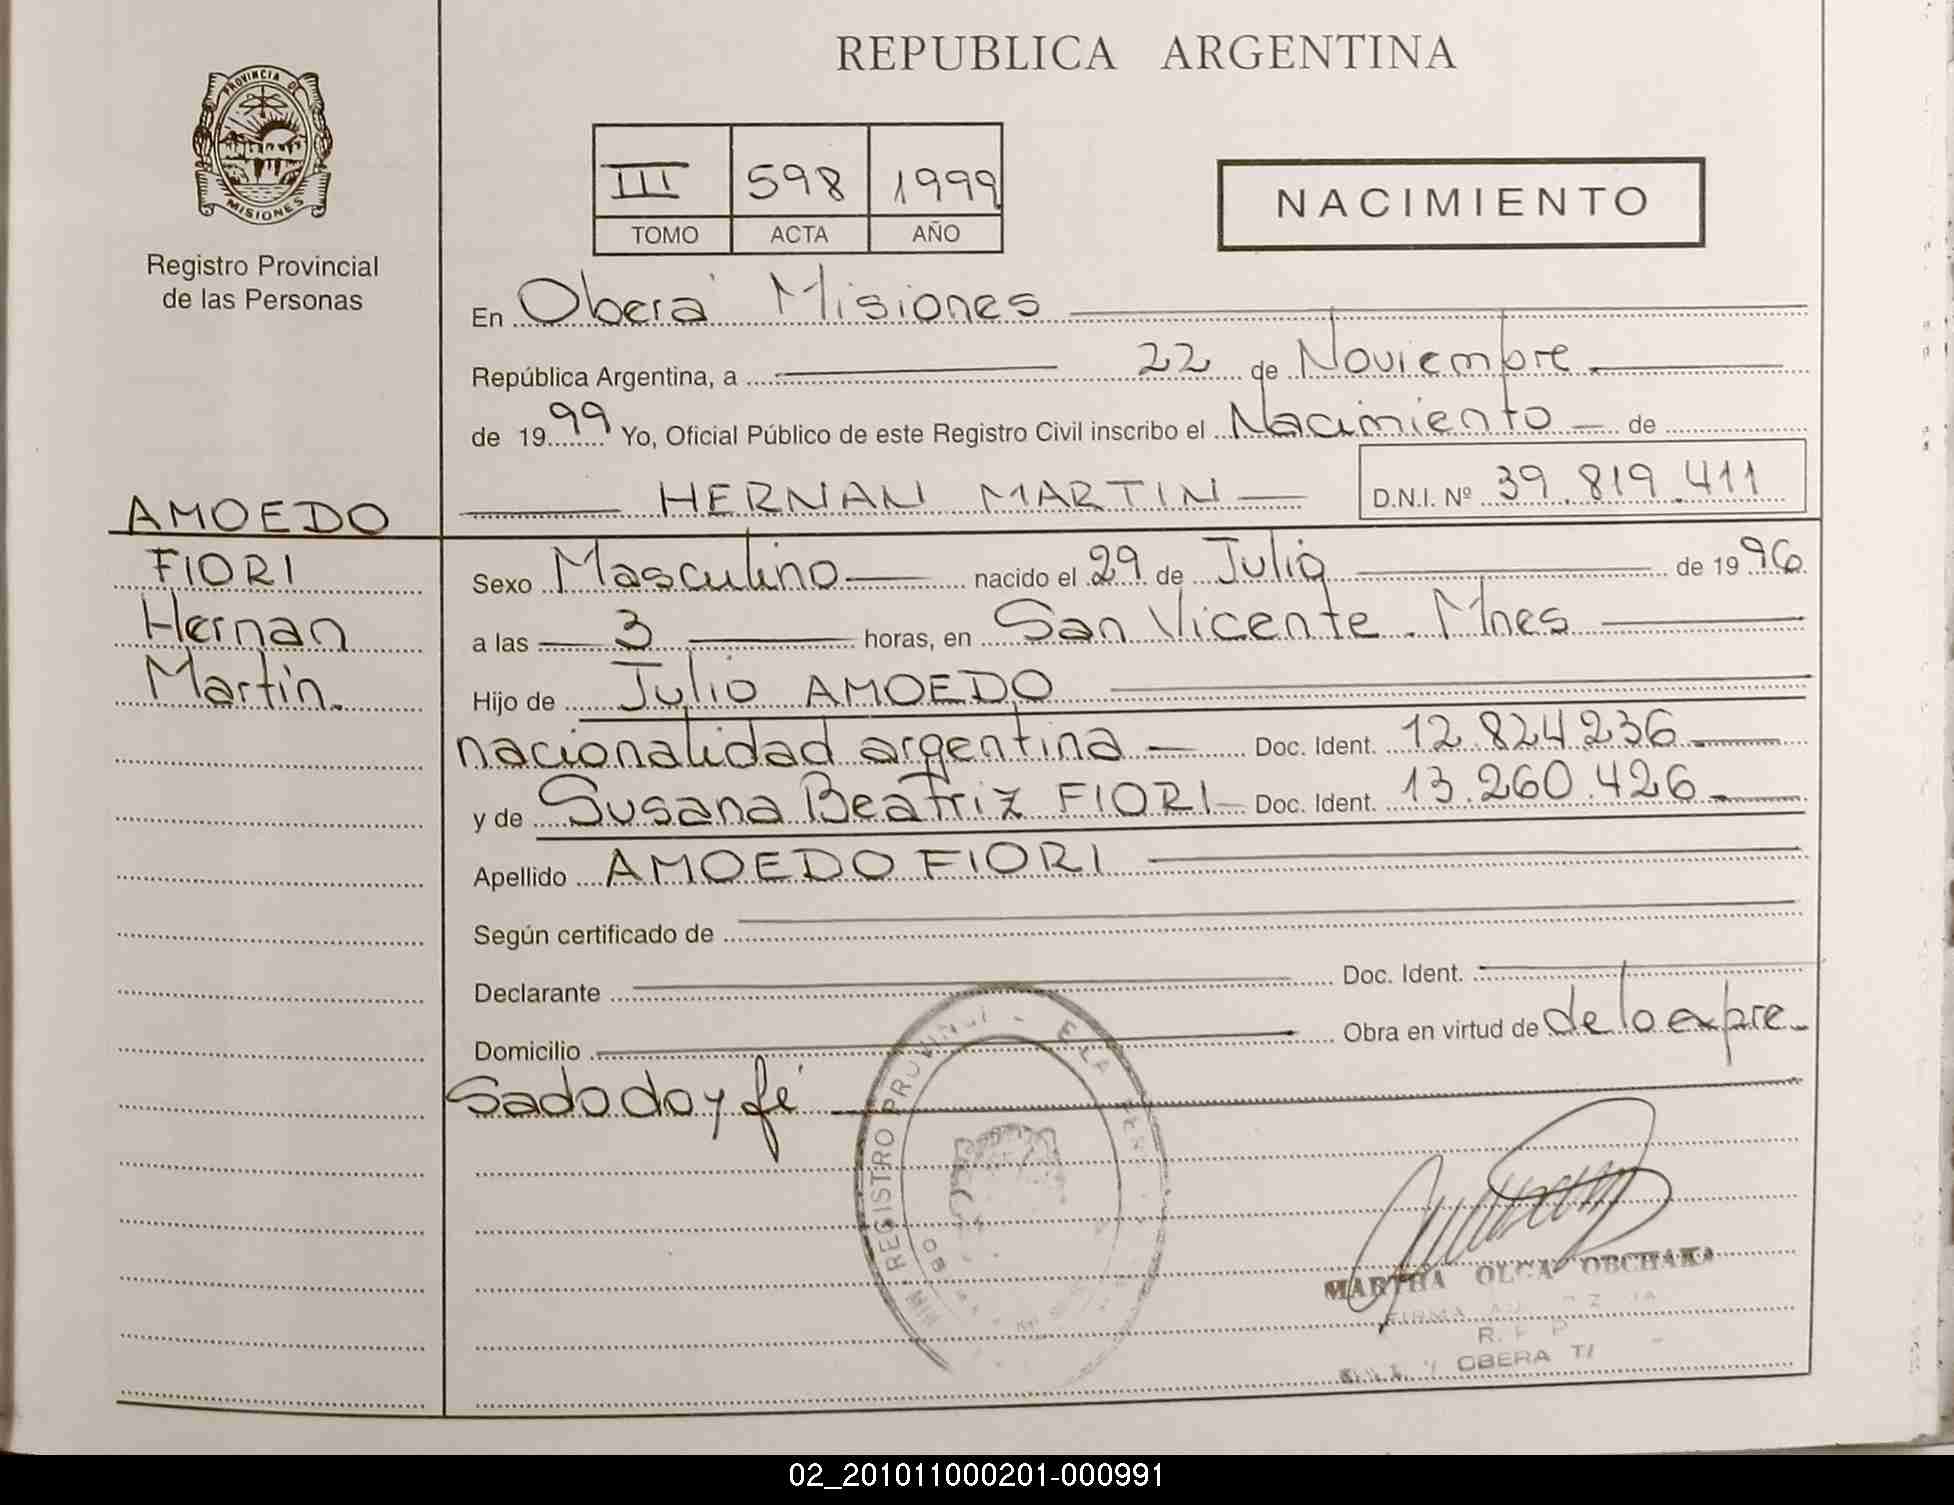 REPUBLICA ARGENTINA
PROVINCIA DE
MISIONES
Registro Provincial
de las Personas
III 598 1999
TOMO ACTA AÑO
NACIMIENTO
En Oberá Misiones
República Argentina, a 22 de Noviembre
de 19 99 Yo, Oficial Público de este Registro Civil inscribo el Nacimiento de
HERNAN MARTIN D.N.I. Nº 39.819.411
AMOEDO
FIORI
Hernan
Martín.
Sexo Masculino nacido el 29 de Julio de 19 96
a las 3 horas, en San Vicente. Mnes
Hijo de Julio AMOEDO
nacionalidad argentina Doc. Ident. 12.824.236
y de Susana Beatriz FIORI Doc. Ident. 13.260.426
Apellido AMOEDO FIORI
Según certificado de
Declarante Doc. Ident.
Domicilio Obra en virtud de de lo expre-
sado doy fé
REGISTRO
MARTHA OLGA OBCHAKA
OBERA
02_201011000201-000991